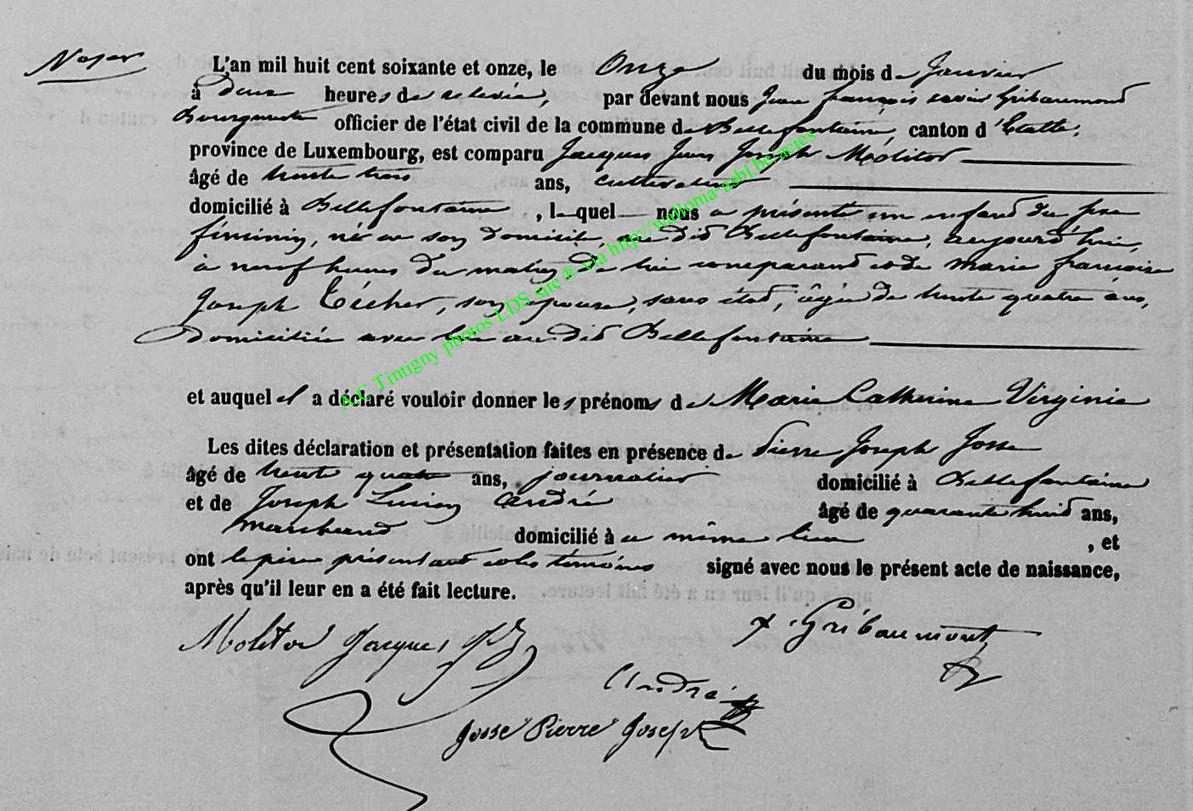 L'an mil huit cent soixante et onze, le Onze du mois de Janvier
à deux heures de relevée, par devant nous Jean françois xavier Gribaumont
Bourgmestre officier de l'état civil de la commune de Bellefontaine, canton d'Etalle,
province de Luxembourg, est comparu Jacques Jean Joseph Molitor
âgé de trente trois ans, cultivateur
domicilié à Bellefontaine, lequel nous a présenté un enfant du sexe
féminin, né en son domicile, au dit Bellefontaine, aujourd'hui,
à neuf heures du matin, de lui comparant et de marie francoise
Joseph son épouse, sans état, âgée de trente quatre ans,
Domiciliée avec lui au dit Bellefontaine
et auquel il a déclaré vouloir donner les prénoms de Marie Catherine Virginie
Les dites déclaration et présentation faites en présence de Pierre Joseph Josse
âgé de trente quatre ans, journalier domicilié à Bellefontaine
et de Joseph Lucien André âgé de quarante huit ans,
marchand domicilié à même lieu, et
ont le père présentant et les témoins signé avec nous le présent acte de naissance,
après qu'il leur en a été fait lecture.
Molitor Jacques Jh
x. Gribaumont
André
Josse Pierre Joseph
A-C Tintigny photos LDS site ® via http://wallonia-asbl.be/actes